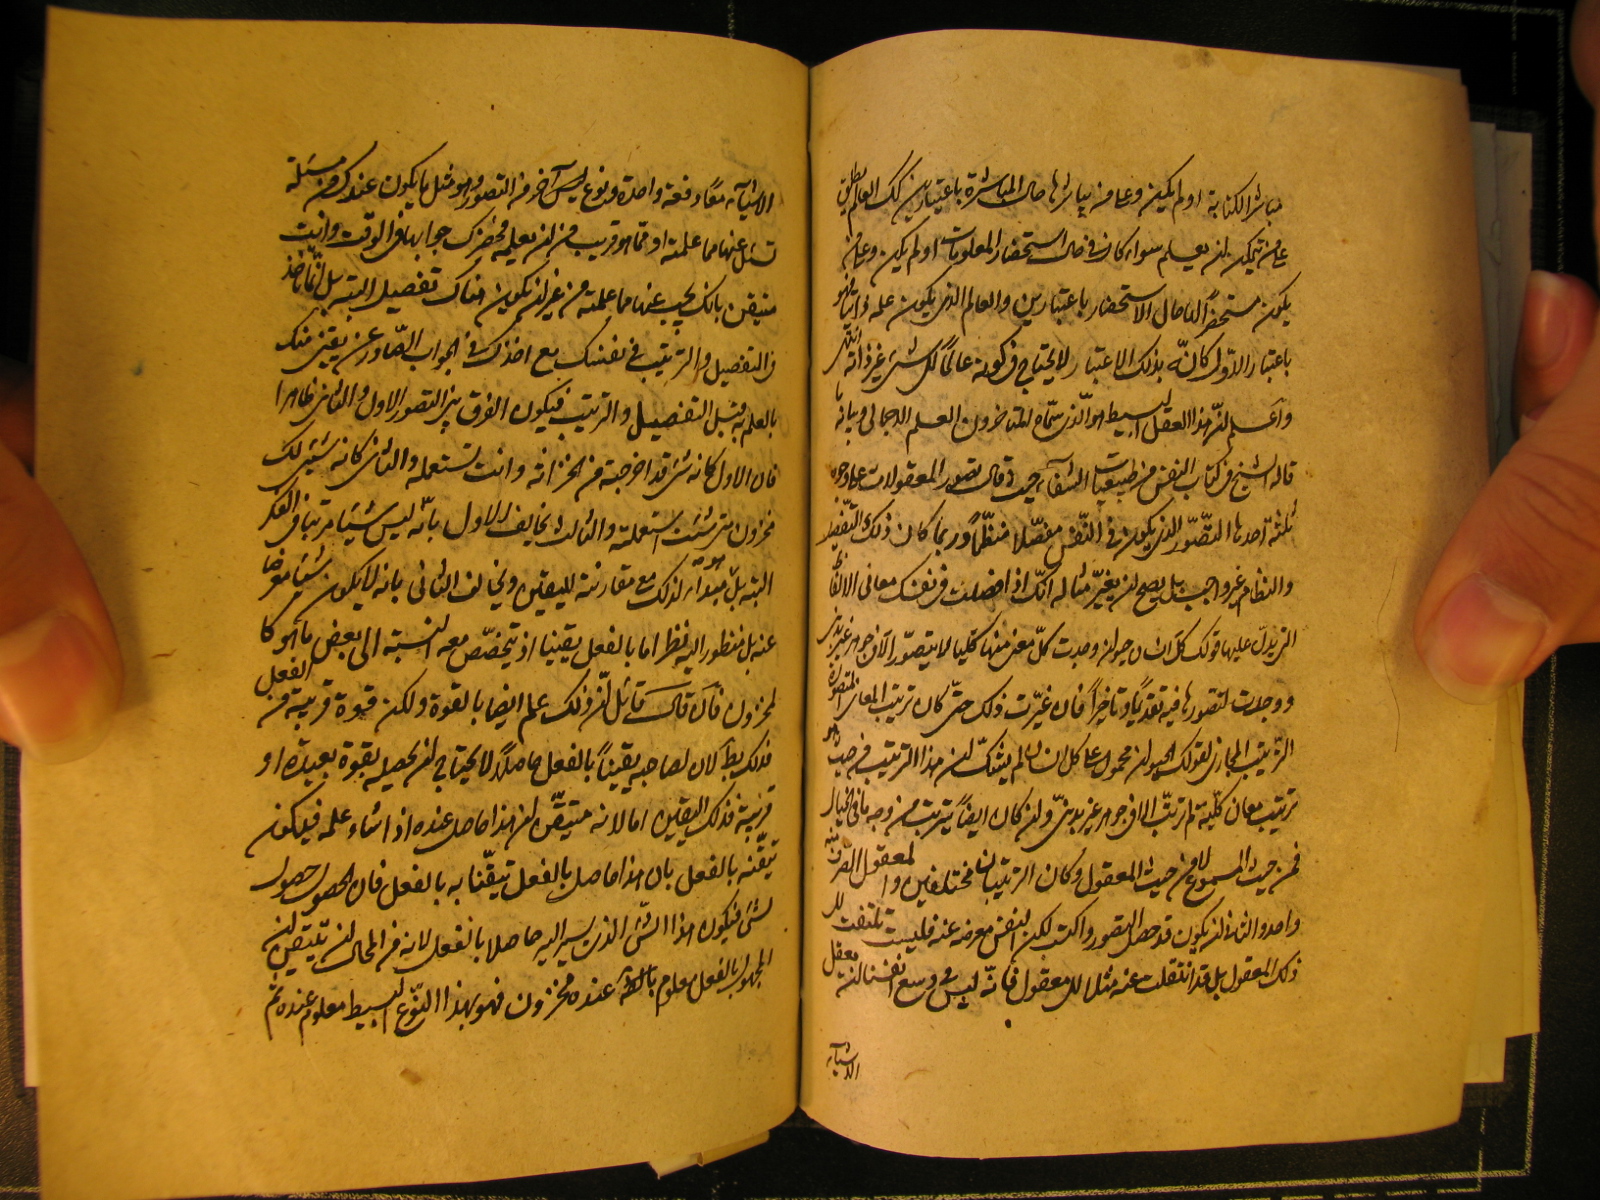 مباشر الكتابة او لم يكن وعلى من يباشرها حال المباشرة باعتبارين كك العالم يطلق
على من تمكن لن يعلم سواء كان في حال استحضار المعلومات او لم يكن وعلى من
يكون مستحضرا لها حال الاستحضار باعتبارين والعالم الذي يكون علمه ذاتيا فهو
باعتبار الاول كانه بذلك الاعتبار لا يحتاج في كونه عالما لك شئ غير ذاته انتهى
واعلم لن هذا العقل البسيط هو الذي سماه المتاخرون العلم الاجمالي وبيانه ما
قاله الشيخ في كتاب النفس من طبيعيات الشفاء حيث قال تصور المعقولات على وجوه
ثلثة احدها التصور الذي يكون في النفس مفصلا منظما وربما كان ذلك التفصيل
والنظام غير واجب بل يصح لن يغير مثاله انك اذا فصلت في نفسك معاني الالفاظ
التي يدل عليها قولك كل انسان حيوان وجدت كل معنى منها كليا لا يتصور الا في جوهر غير بدني
ووجدت لتصورها فيه تقديما وتاخيرا فان غيرت ذلك حتى كان ترتيب المعاني المتصورة
الترتيب المحاذي لقولك الحيوان محمول على كل انسان لم يشك لن هذا الترتيب من حيث هو
ترتيب معان كلية لم يترتب الا في جوهر غير بدني ولن كان ايضا يترتب من وجه ما في الخيال
فمن حيث المسموع لا من حيث المعقول وكان الترتيبان مختلفين والمعقول الصرف منه
واحد والثاني لن يكون قد حصل التصور واكتسب لكن النفس معرضة عنه فليست تلتفت لك
ذلك المعقول بل قد انتقلت عنه مثلا لك معقول فانه ليس في وسع انفسنا لن نعقل
الاشياء
الاشياء معا دفعة واحدة ونوع آخر من التصور وهو مثل ما يكون عندك من مسئلة
تسئل عنها مما علمته او مما هو قريب من لن يعلمه فحضرك جوابها في الوقت وانت
متيقن بانك تجيب عنها مما علمته من غير لن يكون هناك تفصيل البتة بل انما تاخذ
في التفصيل والترتيب في نفسك مع اخذك في الجواب الصادر عن يقين منك
بالعلم به قبل التفصيل والترتيب فيكون الفرق بين التصور الاول والثاني ظاهرا
فان الاول كانه شئ قد اخرجته من الخزانة وانت تستعمله والثاني كانه شئ لك
مخزون متى شئت استعملته والثالث يخالف الاول بانه ليس شيئا مرتبا في الفكر
البتة بل هو مبدأ لذلك مع مقارنته لليقين ويخالف الثاني بانه لا يكون شيئا معرضا
عنه بل منظور اليه نظرا ما بالفعل يقينا اذ يتخصص معه النسبة الى بعض ما هو كا
لمخزون فان قال قائل لن ذلك علم ايضا بالقوة ولكن قوة قريبة من الفعل
فذلك بط لان لصاحبه يقينا بالفعل حاصلا لا يحتاج لن يحصله بقوة بعيدة او
قريبة فذلك اليقين اما لانه متيقن لن هذا حاصل عنده اذا شاء علمه فيكون
تيقنه بالفعل بان هذا حاصل بالفعل تيقنا به بالفعل فان الحصول حصول
لشئ فيكون هذا الشئ الذي يشير اليه حاصلا بالفعل لانه من المحال لن يتيقن لن
المجهول بالفعل معلوم عنده مخزون فهو بهذا النوع البسيط معلوم عنده ثم